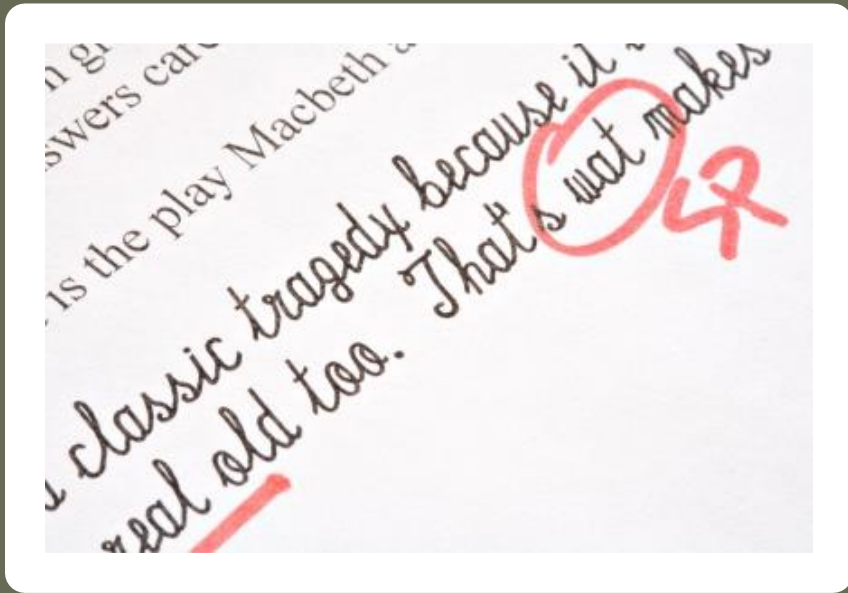 n g
swers car
is the play Macbeth a
classic tragedy because it
real old too. That's wat makes
SP